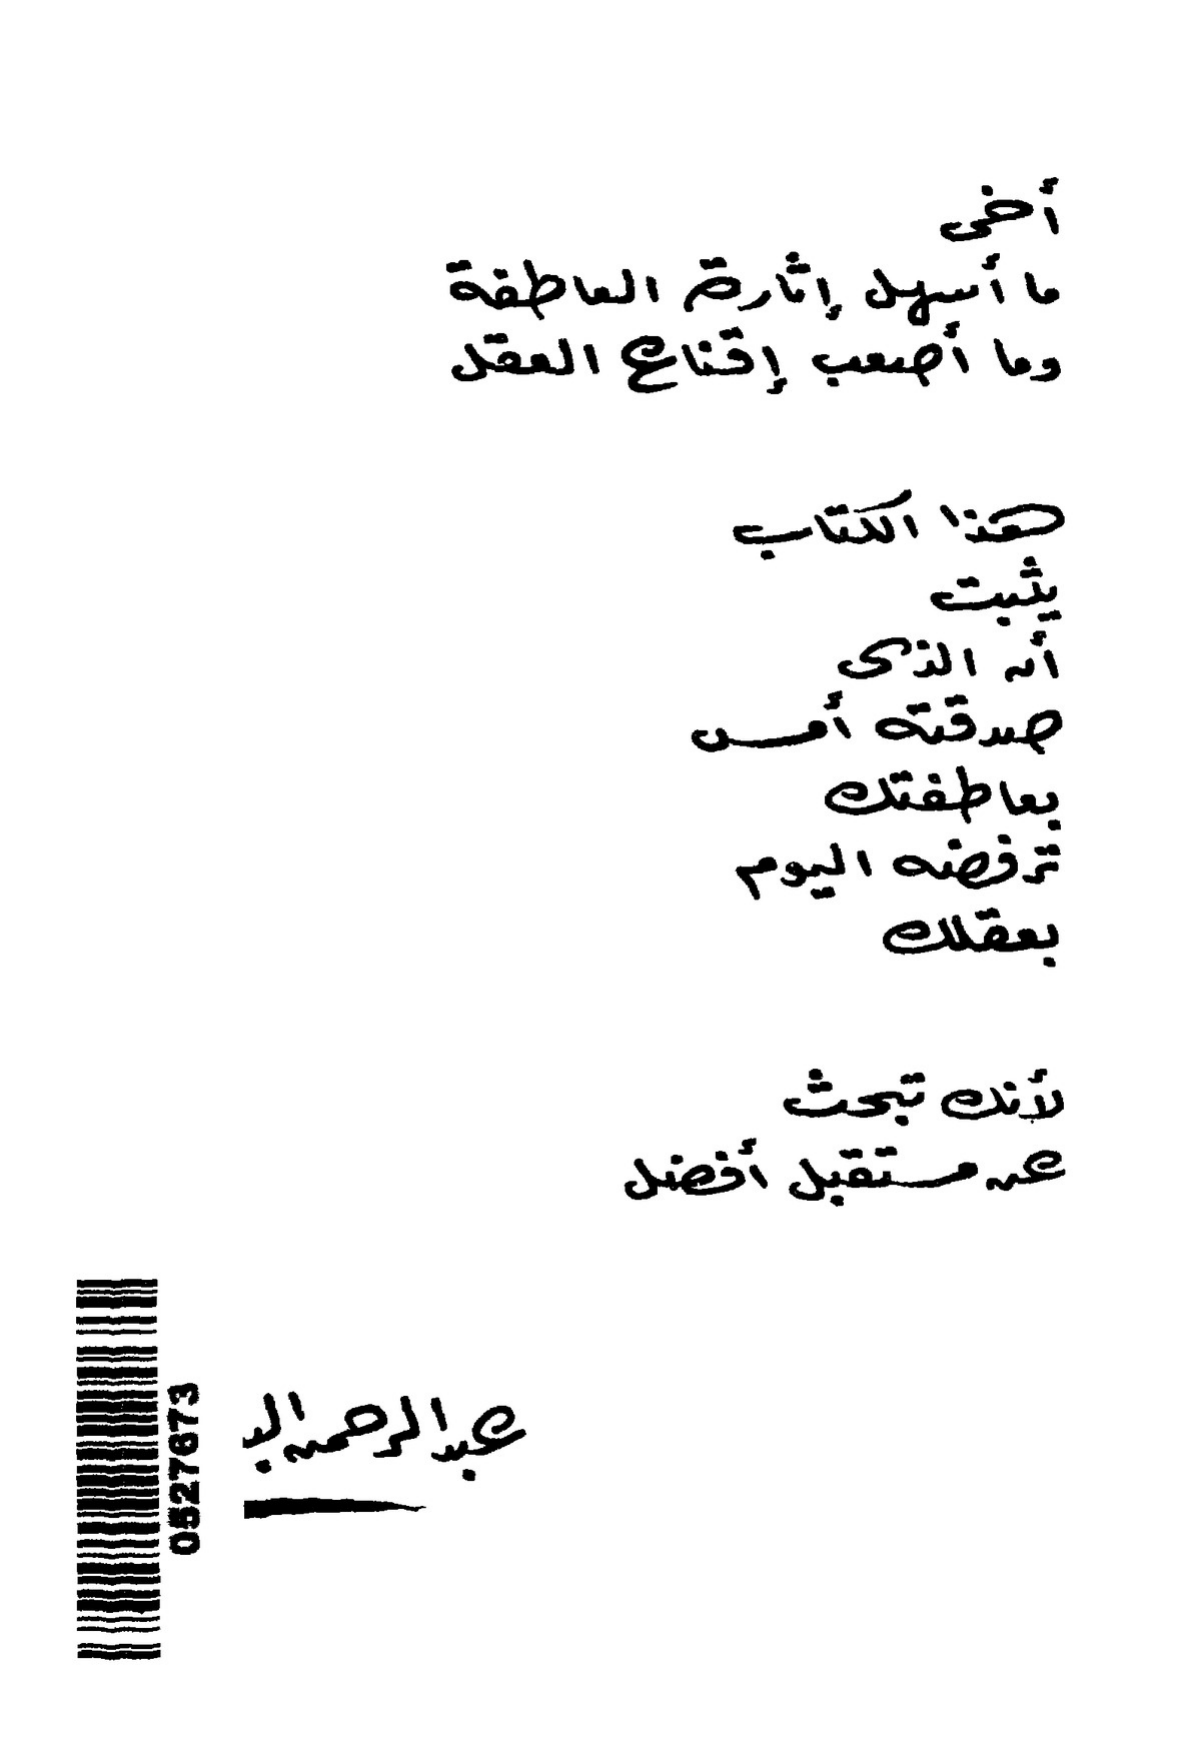 أخى
ما أسهل إثارة العاطفة
وما أصعب إقناع العقل
هذا الكتاب
يثبت
أن الذى
صدقته أمس
بعاطفتك
ترفضه اليوم
بعقلك
لأنك تبحث
عن مستقبل أفضل
عبد الرحمن
0527673